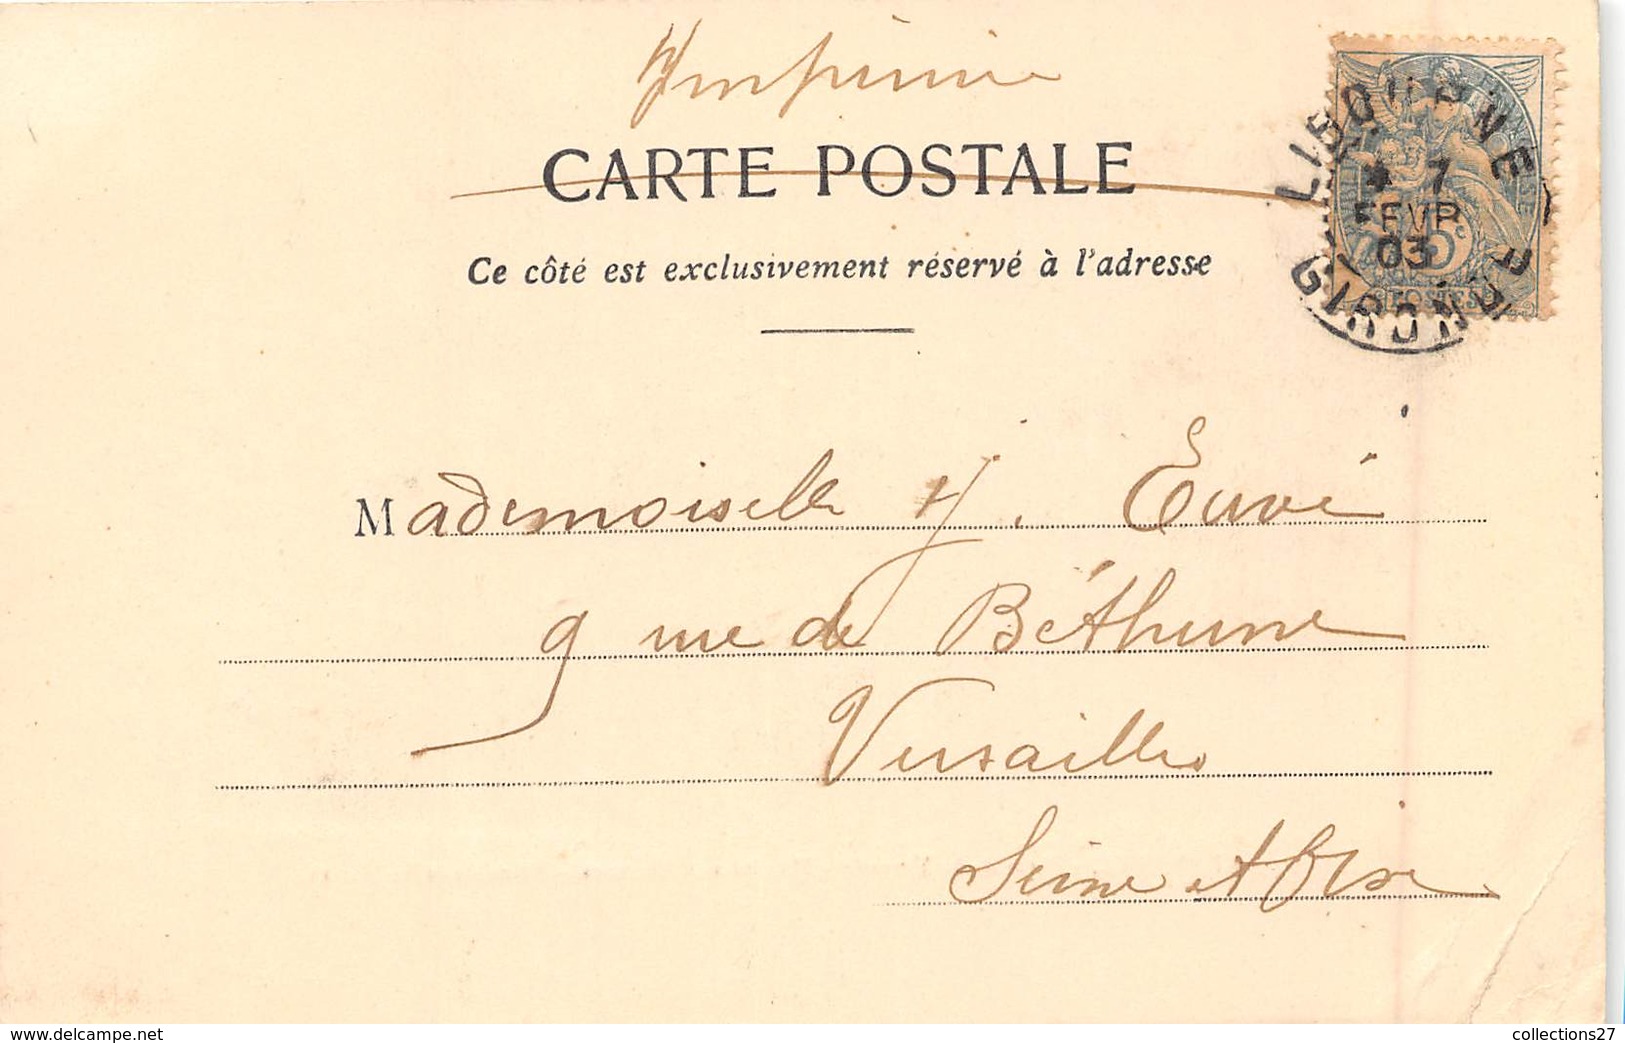 Imprimé
CARTE POSTALE
Ce côté est exclusivement réservé à l'adresse
LIBOURNE
7
FEVR
03
GIRONDE
5c
POSTES
Mademoiselle J. Euvé
9 rue de Béthune
Versailles
Seine et Oise
www.delcampe.net
collections27